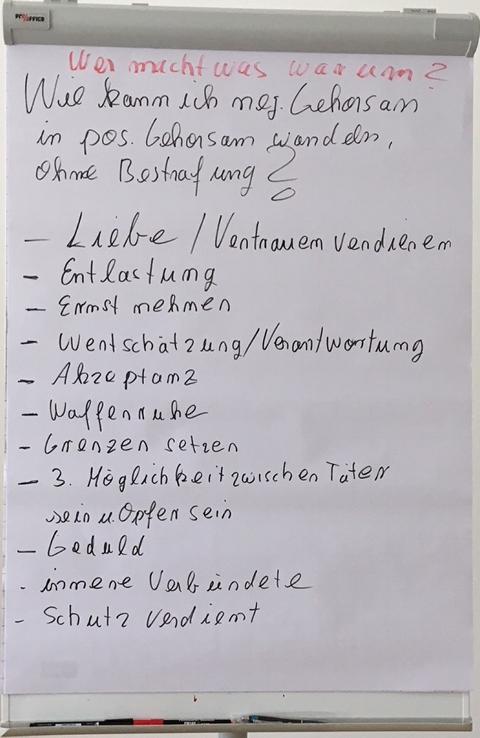 Wer macht was warum?
Wie kann ich neg. Gehorsam
in pos. Gehorsam wandeln,
ohne Bestrafung?
- Liebe / Vertrauen verdienen
- Entlastung
- Ernst nehmen
- Wertschätzung/Verantwortung
- Akzeptanz
- Waffenruhe
- Grenzen setzen
- 3. Möglichkeit zwischen Täter
sein u. Opfer sein
- Geduld
- innere Verbündete
- Schutz verdient